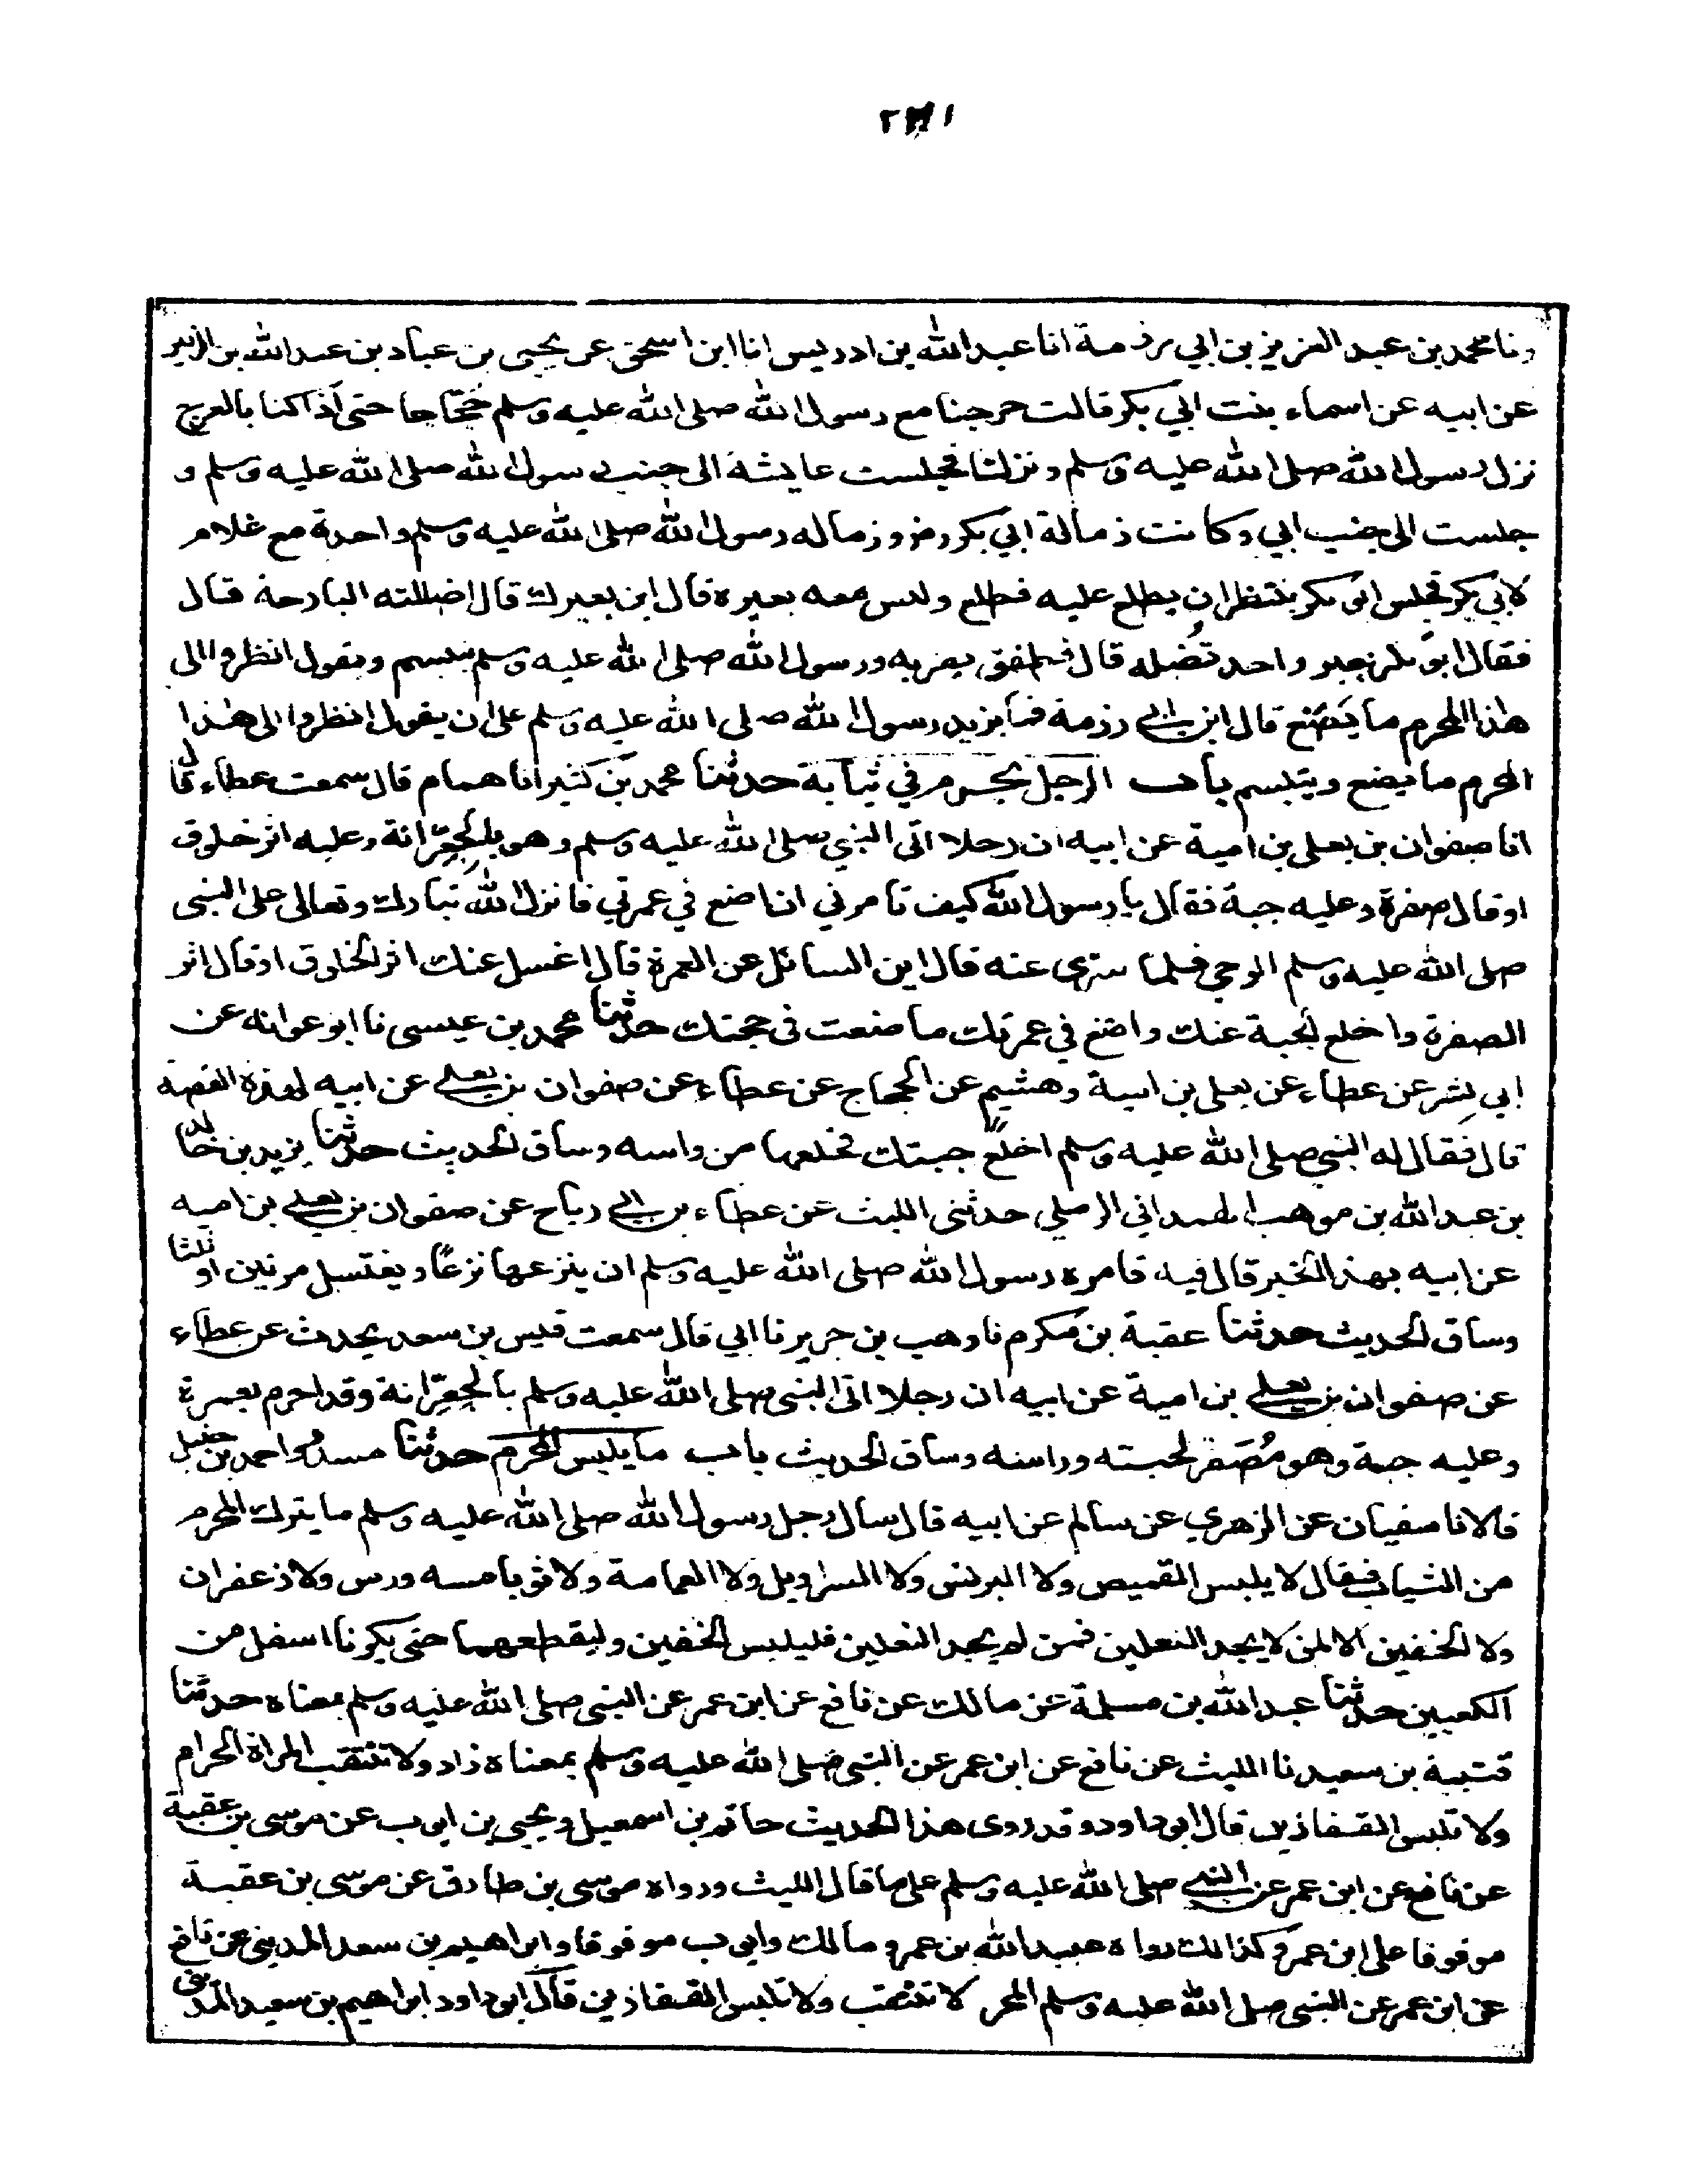 ونا محمد بن عبد العزيز بن ابي رزمة انا عبد الله بن ادريس انا ابن اسحق عن يحيى بن عباد بن عبد الله بن الزبير
عن ابيه عن اسماء بنت ابي بكر قالت خرجنا مع رسول الله صلى الله عليه وسلم حُجّاجا حتى اذا كنا بالعرج
نزل رسول الله صلى الله عليه وسلم ونزلنا فجلست عايشة الى جنب رسول الله صلى الله عليه وسلم و
جلست الى جنب ابي وكانت زمالة ابي بكر رض وزماله رسول الله صلى الله عليه وسلم واحدة مع غلام
لابي بكر فجلس ابو بكر ينتظر ان يطلع عليه فطلع وليس معه بعيره قال اين بعيرك قال اضللته البارحة قال
فقال ابو بكر بعير واحد تُضله قال فطفق يضربه ورسول الله صلى الله عليه وسلم يتبسم ويقول انظروا الى
هذا المحرم ما يَصْنع قال ابن ابي رزمة فما يزيد رسول الله صلى الله عليه وسلم على ان يقول انظروا الى هذا
المحرم ما يصنع ويتبسم باب الرجل يحرم في ثيابه حدثنا محمد بن كثير انا همام قال سمعت عطاء قال
انا صفوان بن يعلى بن امية عن ابيه ان رجلا اتى النبي صلى الله عليه وسلم وهو بالجِعِرّانة وعليه اثر خلوق
او قال صفرة وعليه جبة فقال يا رسول الله كيف تامرني ان اصنع في عمرتي فانزل الله تبارك وتعالى على النبي
صلى الله عليه وسلم الوحي فلما سُرّي عنه قال اين السائل عن العمرة قال اغسل عنك اثر الخلوق او قال اثر
الصفرة واخلع لجبة عنك واصنع في عمرتك ما صنعت في حجتك حدثنا محمد بن عيسى نا ابو عوانه عن
ابي بِشر عن عطاء عن يعلى بن امية وهشيم عن الحجاج عن عطاء عن صفوان بن يعلى عن ابيه بهذه القصة
قال فقال له النبي صلى الله عليه وسلم اخلع جبتك فخلعها من راسه وساق لحديث حدثنا يزيد بن خالد
بن عبد الله بن موهب الهمداني الرملي حدثني الليث عن عطاء بن ابي رباح عن صفوان بن يعلى بن اميه
عن ابيه بهذا الخبر قال فيه فامره رسول الله صلى الله عليه وسلم ان ينزعها نزعًا ويغتسل مرتين او ثلثا
وساق لحديث حدثنا عقبة بن مكرم نا وهب بن جرير نا ابي قال سمعت قيس بن سعد يحدث عن عطاء
عن صفوان بن يعلى بن امية عن ابيه ان رجلا اتى النبي صلى الله عليه وسلم بالجِعِرّانة وقد احرم بعمرة
وعليه جبة وهو مُصَفر لحيته وراسه وساق لحديث باب ما يلبس المحرم حدثنا مسدد واحمد بن حنبل
قالا نا سفيان عن الزهري عن سالم عن ابيه قال سال رجل رسول الله صلى الله عليه وسلم ما يترك المحرم
من الثياب فقال لا يلبس القميص ولا البرنس ولا السراويل ولا العمامة ولا ثوبا مسه ورس ولا زعفران
ولا لخفين الا لمن لا يجد النعلين فمن لم يجد النعلين فليلبس الخفين وليقطعهما حتى يكونا اسفل من
الكعبين حدثنا عبد الله بن مسلمة عن مالك عن نافع عن ابن عمر عن النبي صلى الله عليه وسلم بمعناه حدثنا
قتيبة بن سعيد نا الليث عن نافع عن ابن عمر عن النبي صلى الله عليه وسلم بمعناه زاد ولا تنتقب المراة الحرام
ولا تلبس القفازين قال ابو داود وقد روى هذا الحديث حاتم بن اسمعيل ويحيى بن ايوب عن موسى بن عقبة
عن نافع عن ابن عمر عن النبي صلى الله عليه وسلم على ما قال الليث ورواه موسى بن طارق عن موسى بن عقبة
موقوفا على ابن عمر وكذالك رواه عبيد الله بن عمر ومالك وايوب موقوفا وابراهيم بن سعد المديني عن نافع
عن ابن عمر عن النبي صلى الله عليه وسلم المحر لا تنتقب ولا تلبس القفازين قال ابو داود ابراهيم بن سعيد المديني